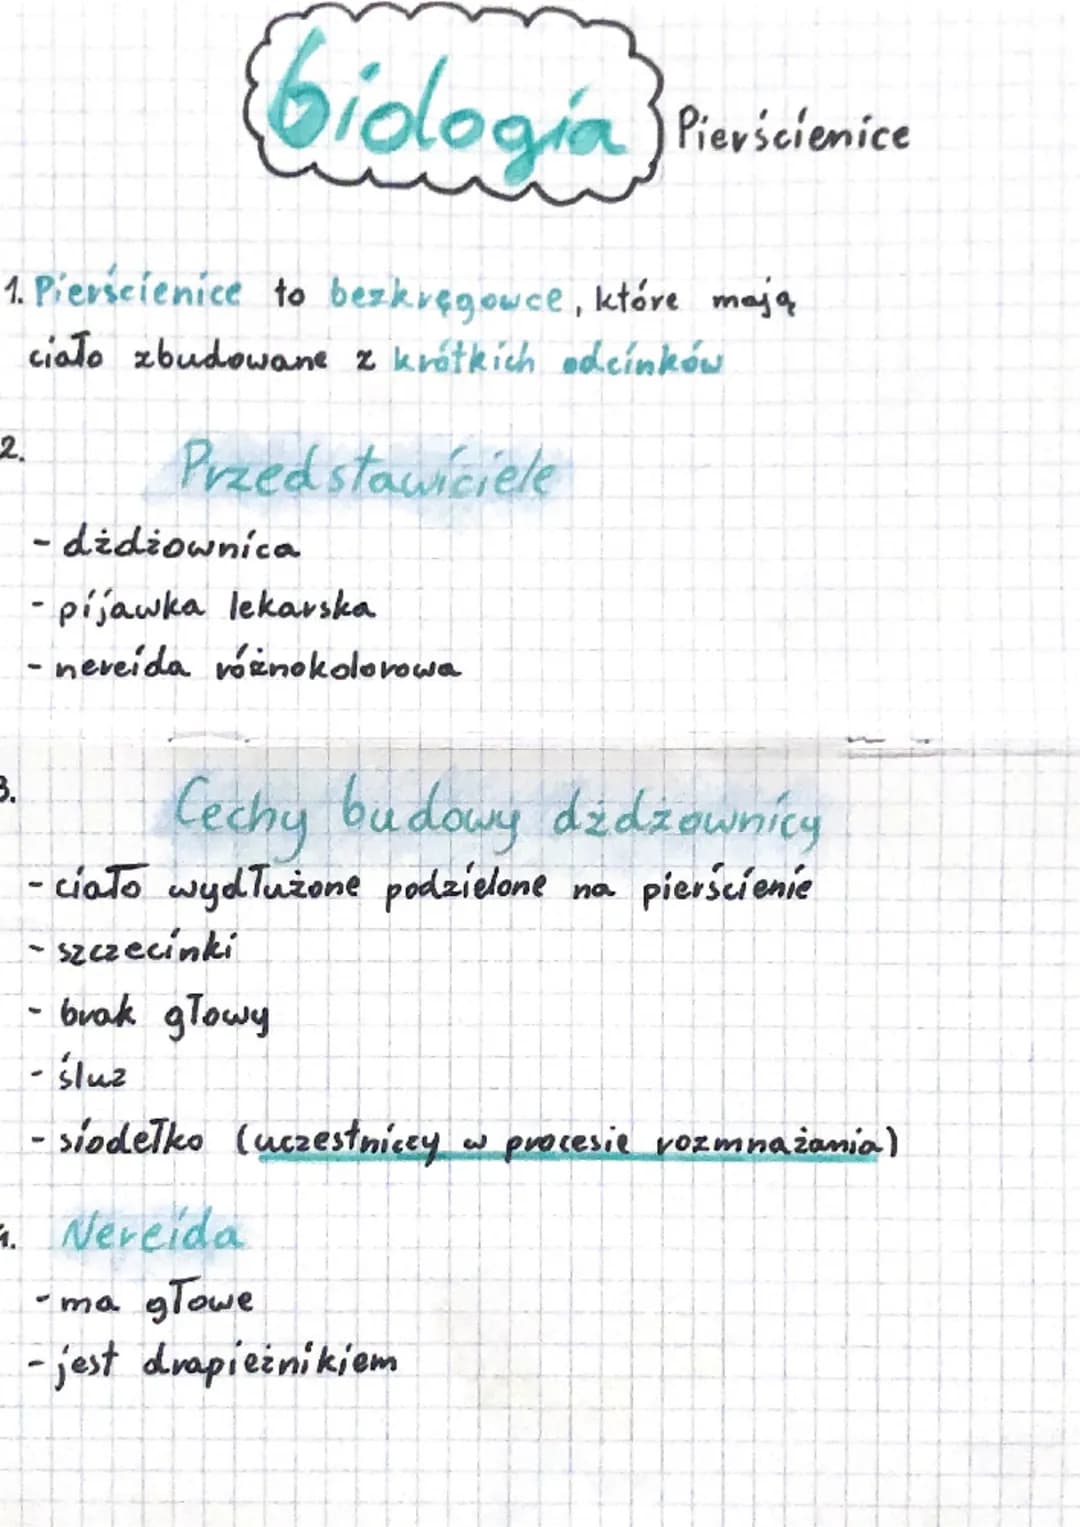 biologia Pierścienice
1. Pierścienice to bezkręgowce, które mają
ciało zbudowane z krótkich odcinków
2. Przedstawiciele
- dżdżownica
- pijawka lekarska
- nereida różnokolorowa
3. Cechy budowy dżdżownicy
- ciało wydłużone podzielone na pierścienie
- szczecinki
- brak głowy
- śluz
- siodełko (uczestniczy w procesie rozmnażania)
4. Nereida
- ma głowe
- jest drapieżnikiem